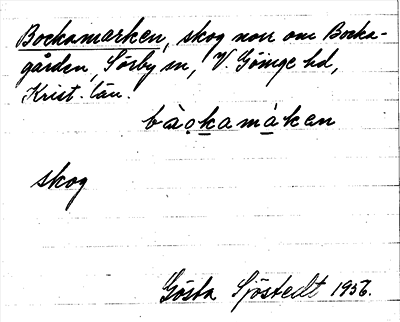 Bockamarken, skog norr om Bocka-
gården, Sörby sn, V. Göinge hd,
Krist. län.
bàọkamàken
skog
Gösta Sjöstedt 1956.